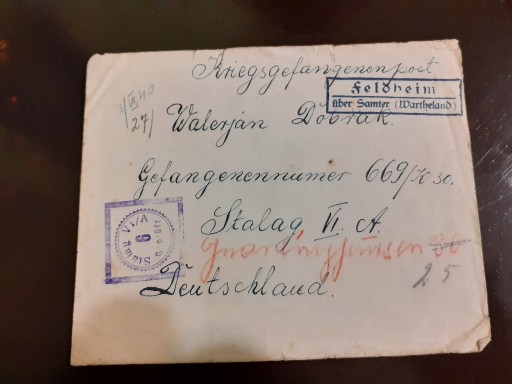 Kriegsgefangenenpost
Feldheim
über Samter (Wartheland)
27/
Walerjan Dobrak.
Gefangenennummer 669/K 30.
Stalag VI. A.
Deutschland.
25
Stalag VI/A
9